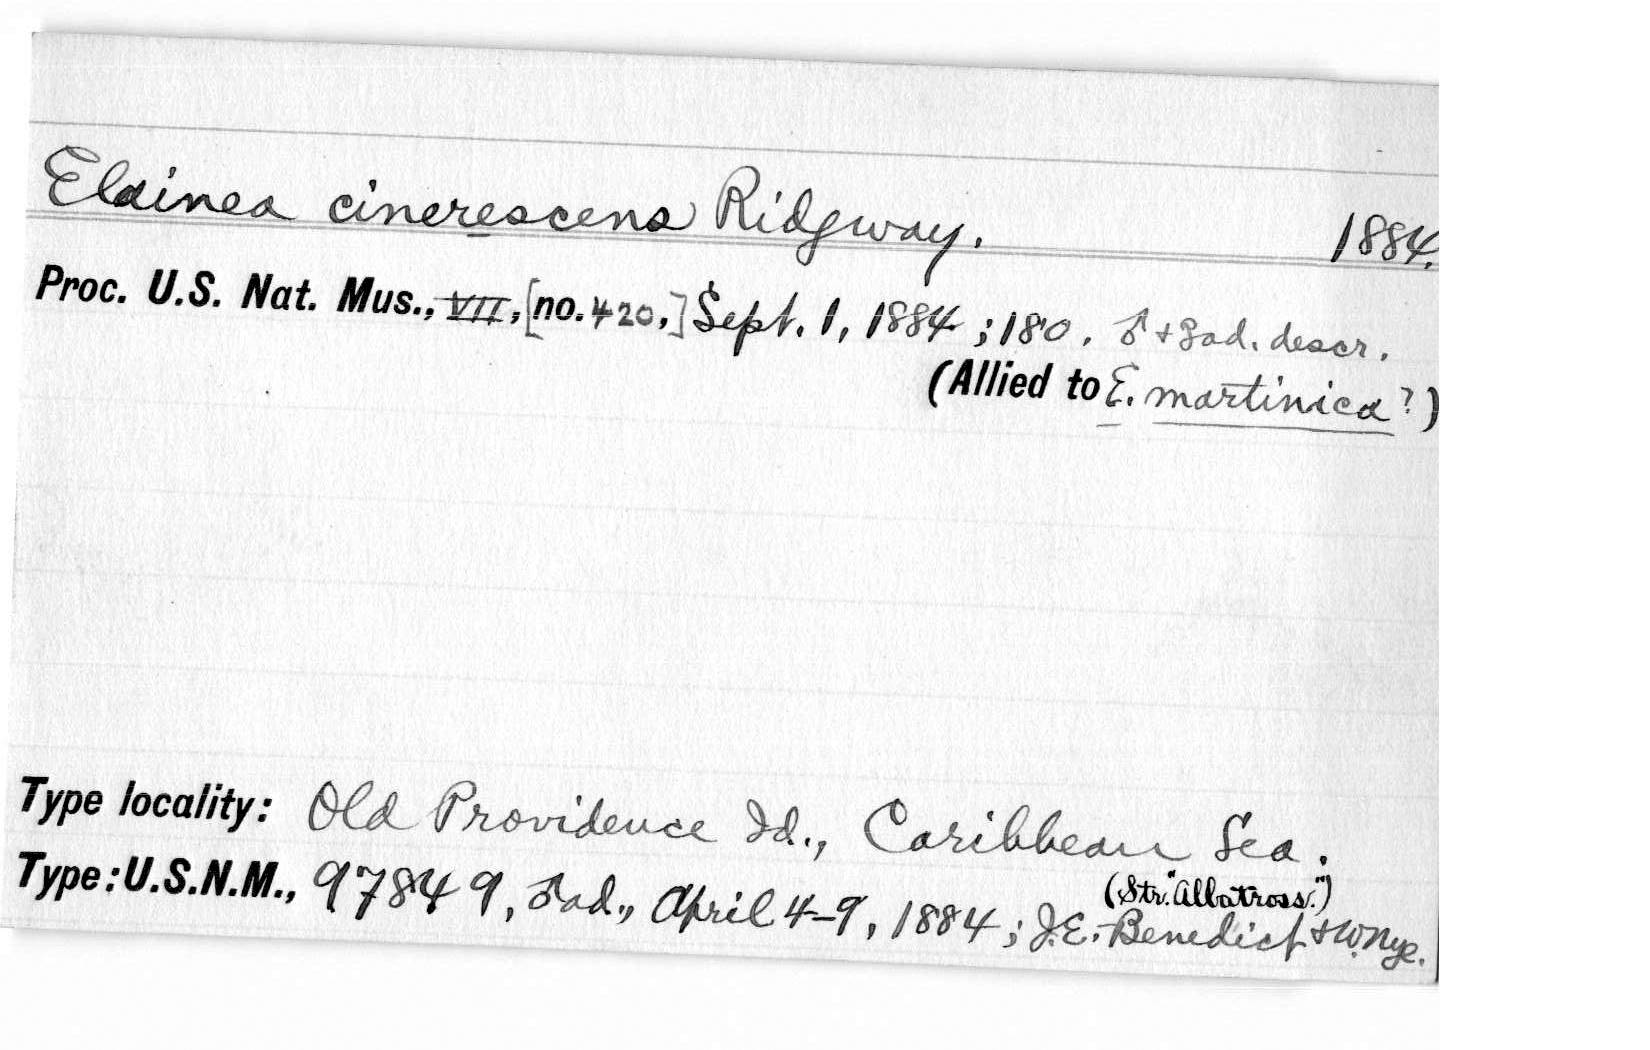 Elainea cinerescens Ridgway. 1884.
Proc. U.S. Nat. Mus., VII, [no. 420,] Sept. 1, 1884; 180. ♂ + ♀ ad. descr.
(Allied to E. martinica?)
Type locality: Old Providence Id., Caribbean Sea.
(Str. "Albatross.")
Type: U.S.N.M., 97849, ♂ ad., April 4-9, 1884; J.E. Benedict + W. Nye.